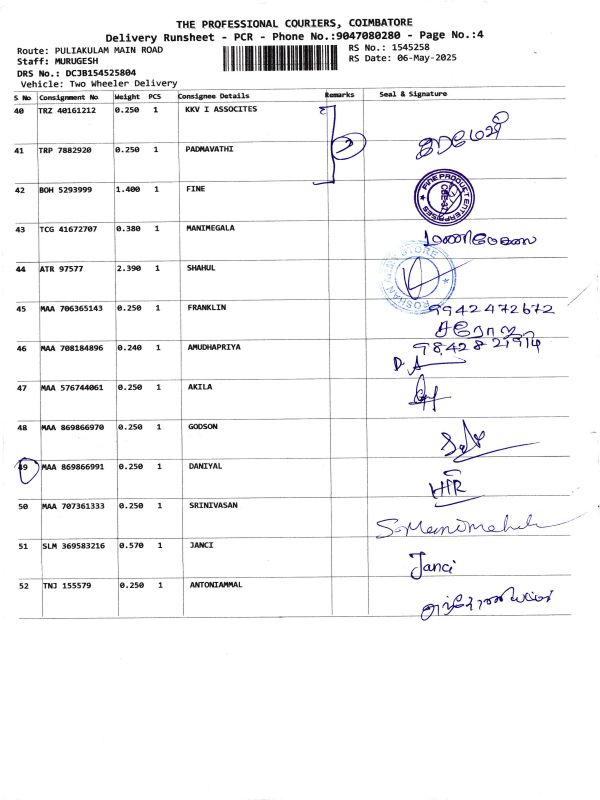 THE PROFESSIONAL COURIERS, COIMBATORE
Delivery Runsheet - PCR - Phone No.:9047080280 - Page No.:4
Route: PULIAKULAM MAIN ROAD
RS No.: 1545258
Staff: MURUGESH
RS Date: 06-May-2025
DRS No.: DCJB154525804
Vehicle: Two Wheeler Delivery
S No Consignment No Weight PCS Consignee Details Remarks Seal & Signature
40 TRZ 40161212 0.250 1 KKV I ASSOCITES
41 TRP 7882920 0.250 1 PADMAVATHI
42 BOH 5293999 1.400 1 FINE
FINE PRODUCT ENTERPRISES
43 TCG 41672707 0.380 1 MANIMEGALA மணிமேகலை
44 ATR 97577 2.390 1 SHAHUL
ROSHAN STORE
45 MAA 706365143 0.250 1 FRANKLIN 9942472672
சரோஜா
46 MAA 708184896 0.240 1 AMUDHAPRIYA
47 MAA 576744061 0.250 1 AKILA
48 MAA 869866970 0.250 1 GODSON
49 MAA 869866991 0.250 1 DANIYAL
50 MAA 707361333 0.250 1 SRINIVASAN
51 SLM 369583216 0.570 1 JANCI Janci
52 TNJ 155579 0.250 1 ANTONIAMMAL